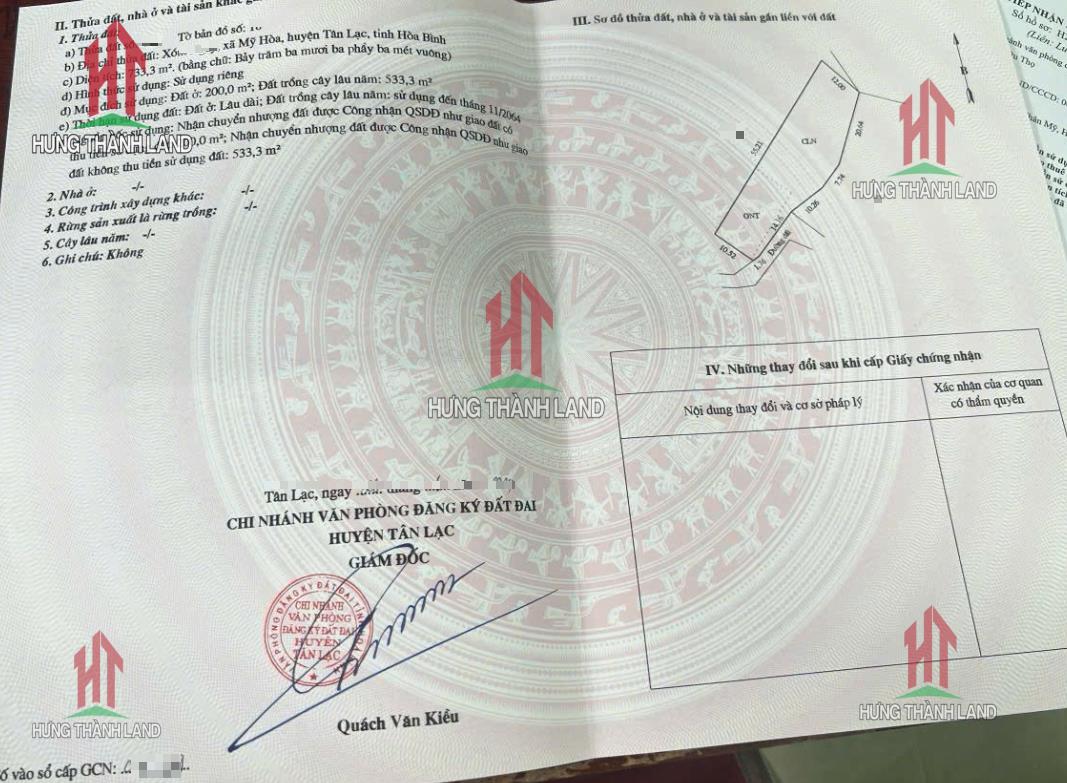 II. Thửa đất, nhà ở và tài sản khác
1. Thửa đất:
a) Thửa đất Tờ bản đồ số:
b) Địa chỉ thửa đất: Xóm xã Mỹ Hòa, huyện Tân Lạc, tỉnh Hòa Bình
c) Diện tích: 733,3 m². (bằng chữ: Bảy trăm ba mươi ba phẩy ba mét vuông)
d) Hình thức sử dụng: Sử dụng riêng
đ) Mục đích sử dụng: Đất ở: 200,0 m²; Đất trồng cây lâu năm: 533,3 m²
e) Thời hạn sử dụng đất: Đất ở: Lâu dài; Đất trồng cây lâu năm: sử dụng đến tháng 11/2064
gốc sử dụng: Nhận chuyển nhượng đất được Công nhận QSDĐ như giao đất có
thu tiền sử m²; Nhận chuyển nhượng đất được Công nhận QSDĐ như giao
đất không thu tiền sử dụng đất: 533,3 m²
2. Nhà ở: -/-
3. Công trình xây dựng khác: -/-
4. Rừng sản xuất là rừng trồng: -/-
5. Cây lâu năm: -/-
6. Ghi chú: Không
Tân Lạc, ngày
CHI NHÁNH VĂN PHÒNG ĐĂNG KÝ ĐẤT ĐAI
HUYỆN TÂN LẠC
GIÁM ĐỐC
CHI NHÁNH
VĂN PHÒNG
ĐĂNG KÝ ĐẤT ĐAI
HUYỆN
TÂN LẠC
Quách Văn Kiểu
số vào sổ cấp GCN:
III. Sơ đồ thửa đất, nhà ở và tài sản gắn liền với đất
B
12.00
20.04
55.21
CLN
7.74
10.26
ONT
14.16
10.52
1.76
Đường
IV. Những thay đổi sau khi cấp Giấy chứng nhận
Nội dung thay đổi và cơ sở pháp lý
Xác nhận của cơ quan
có thẩm quyền
TIẾP NHẬN
Số hồ sơ:
HƯNG THÀNH LAND
HƯNG THÀNH LAND
HƯNG THÀNH LAND
HƯNG THÀNH LAND
HƯNG THÀNH LAND